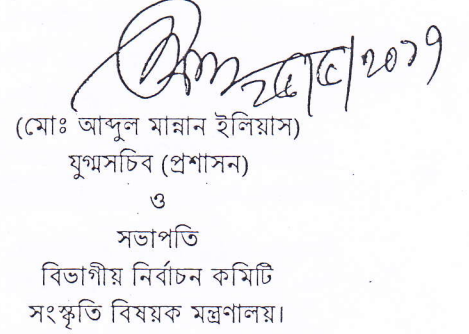 ২৫/৫/২০১৭
(মোঃ আব্দুল মান্নান ইলিয়াস)
যুগ্মসচিব (প্রশাসন)
ও
সভাপতি
বিভাগীয় নির্বাচন কমিটি
সংস্কৃতি বিষয়ক মন্ত্রণালয়।